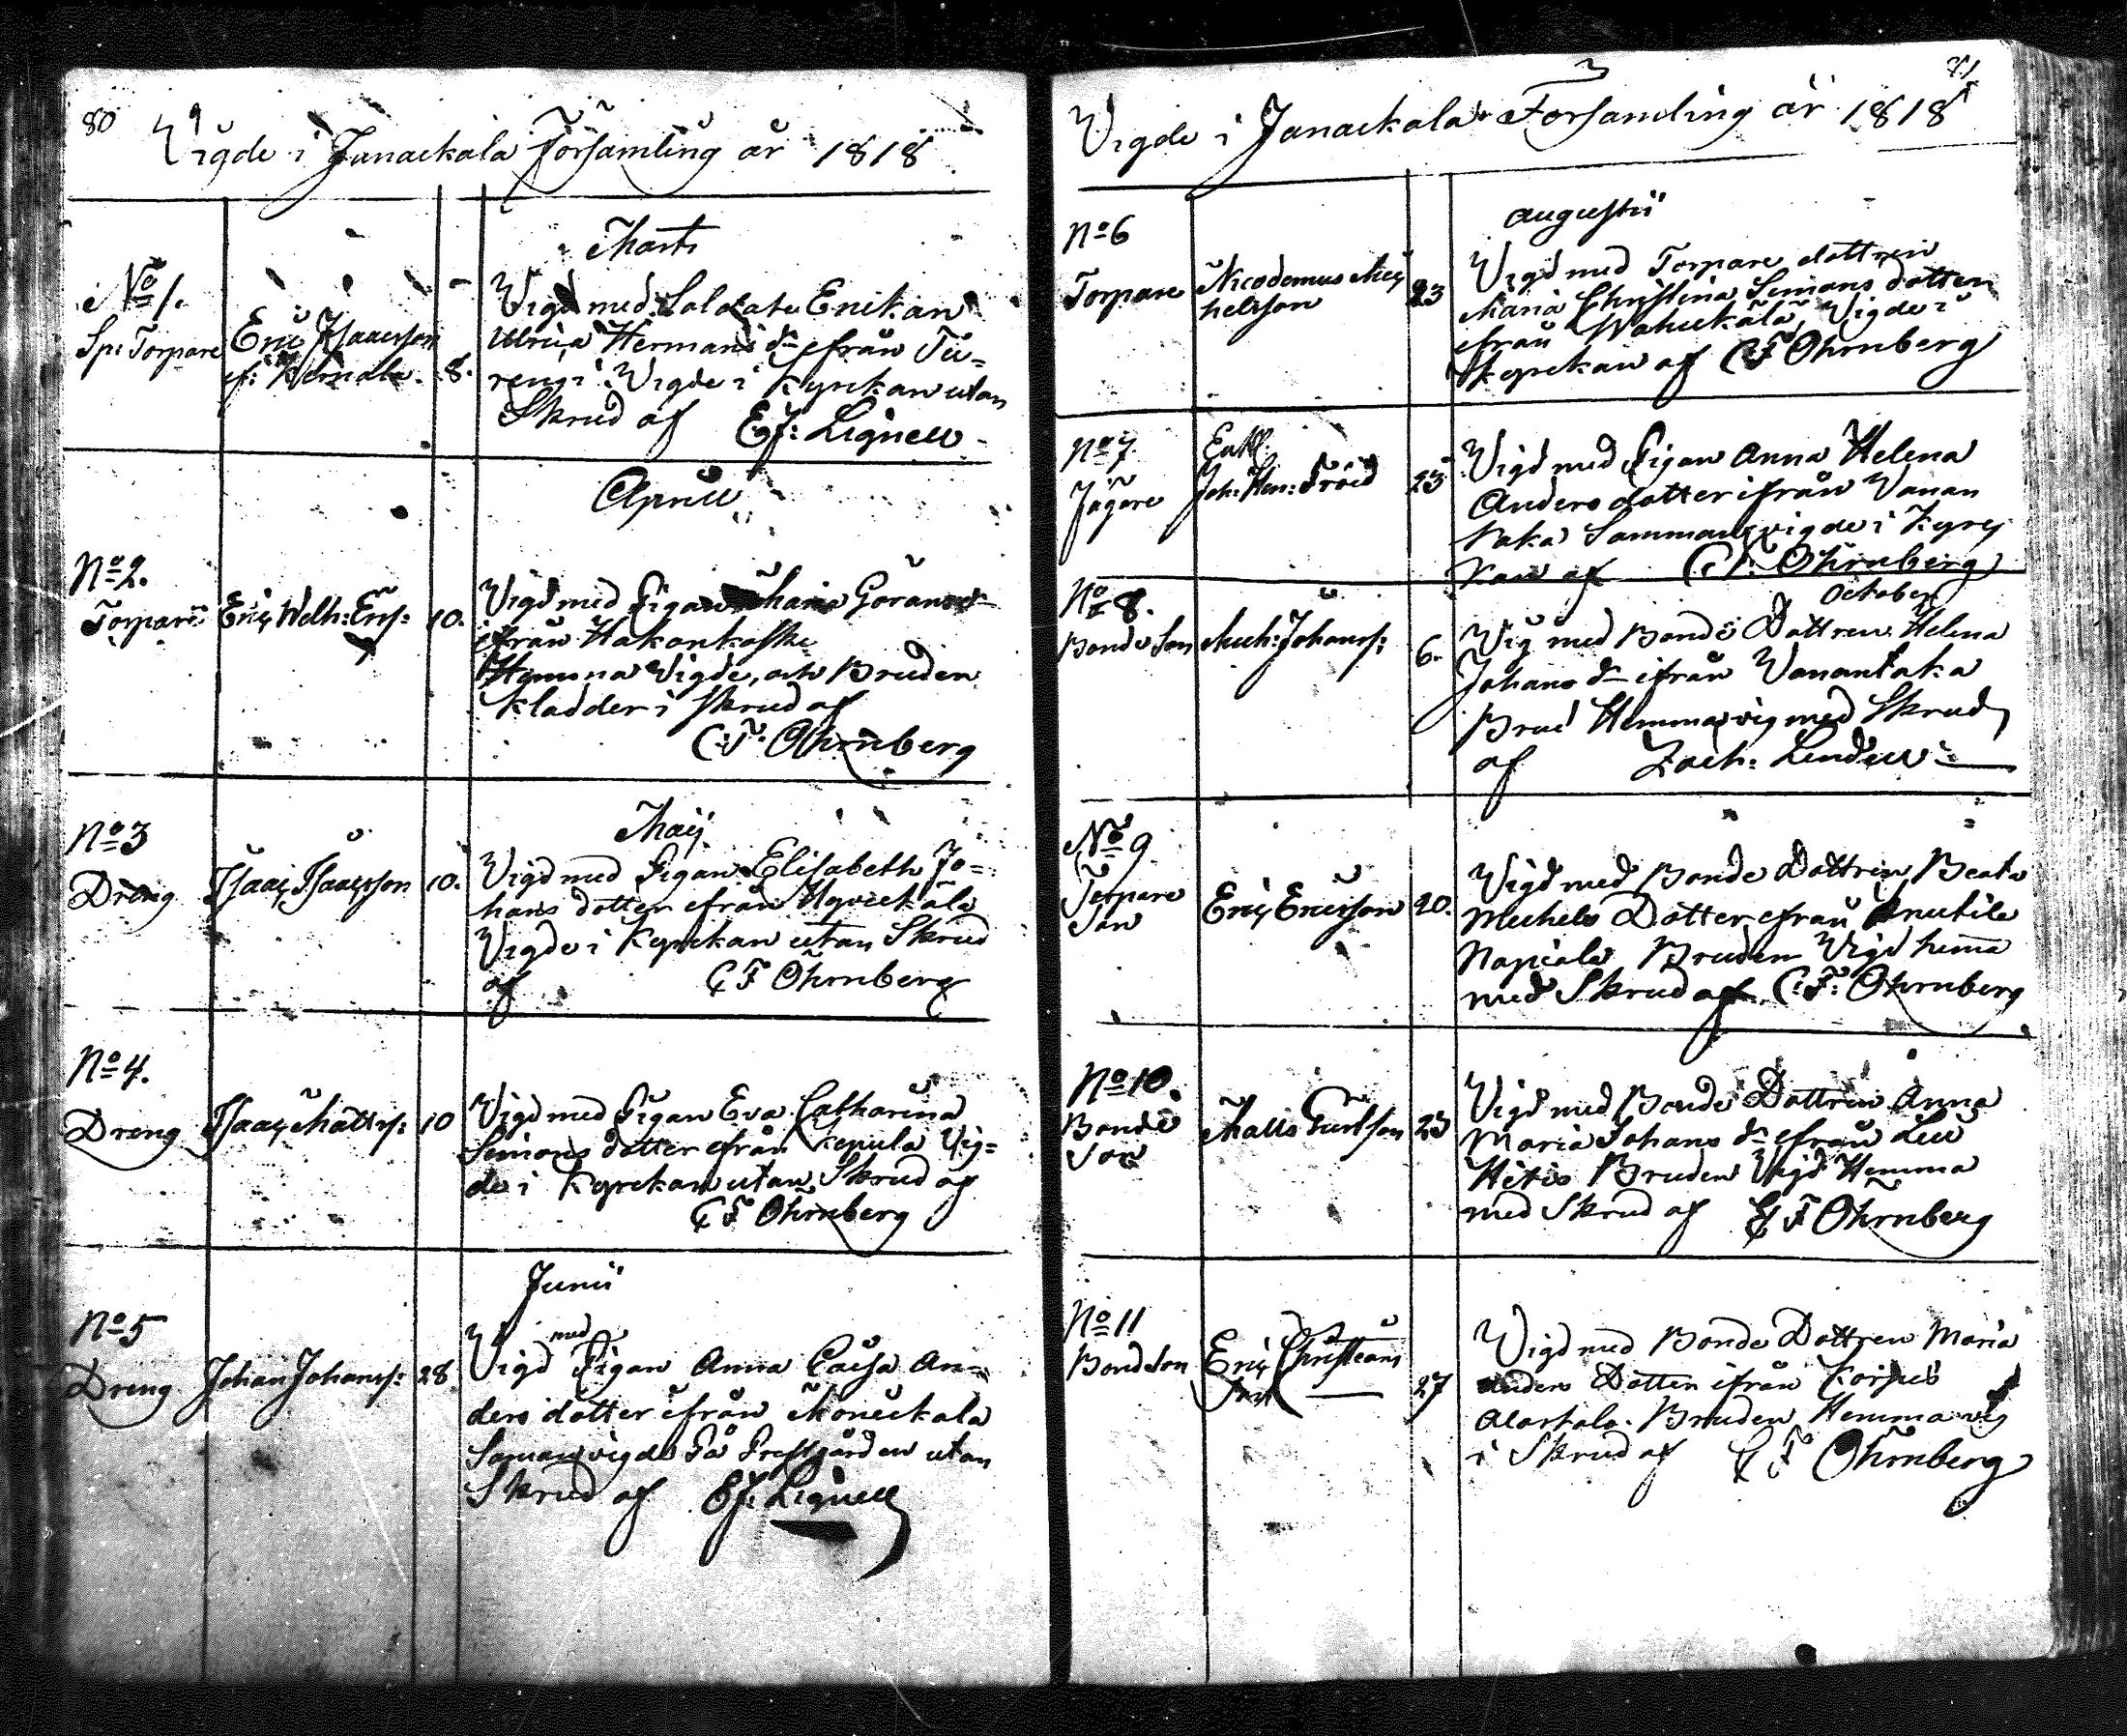 80
Vigde i Janackala Församling år 1818
Marts
No 1.
Sp: Torpare
Eric Isaacsson
if:
8.
Vigd med Soldate Enckan
Ulrica Hermans dr ifrån Tu=
rengi. Vigde i Kyrckan utan
Skrud af Ef: Lignell
Aprill
No 2.
Torpare
Eric Welh: Ers:
10.
Vigd med Pigan Maria Görans dr
ifrån Hakankoski
Hemma Vigde, och Bruden
klädder i skrud af
C:F: Öhrnberg
Maij
No 3
Dreng
Isaac Isaacsson
10.
Vigd med Pigan Elisabeth Jo=
hans dotter ifrån Hyvickälä
Vigde i Kyrckan utan Skrud
af C F Öhrnberg
No 4.
Dreng
Isaac Matts:
10
Vigd med Pigan Eva Catharina
Simons dotter ifrån Kepula Vig=
de i Kyrckan utan Skrud af
C F Öhrnberg
Junii
No 5
Dreng
Johan Johans:
28
Vigd med Pigan Anna Caisa An=
ders dotter ifrån Monickala
Samanvigde På Prestgården utan
Skrud af Ef: Lignell
81
Vigde i Janackala Församling år 1818
Augustii
No 6
Torpare
Nicodemus Mic
helsson
23
Vigd med Torpare dottren
Maria Christina Simons dotter
ifrån Wahickala Vigde i
Kyrckan af C:F Öhrnberg
No 7.
Jägare
Enkl.
Joh: Hen: Fröid
23
Vigd med Pigan Anna Helena
Anders dotter ifrån Vanan
taka Sammanvigde i Kyrc
kan af C F: Öhrnberg
October
No 8.
Bonde Son
Mich: Johans:
6.
Vig med Bonde Dottren Helena
Johans dr ifrån Vanantaka
Brud Hemma vig med Skrud
af Zach: Lindell
No 9
Torpare
Son
Eric Ericsson
20.
Vigd med Bonde Dottren Beata
Michels Dotter ifrån Knutila
Napiala Bruden Vigd hema
med Skrud af C:F: Öhrnberg
No 10.
Bonde
Son
Matts Gustfson
23
Vigd med Bonde Dottren Anna
Maria Johans dr ifrån Leu
Hitis Bruden Vigd Hemma
med Skrud af C F Öhrnberg
No 11
Bondeson
Eric Christians
Son
27
Vigd med Bonde Dottren Maria
Anders Dotter ifrån
Bruden Hemma vig
i Skrud af C F Öhrnberg